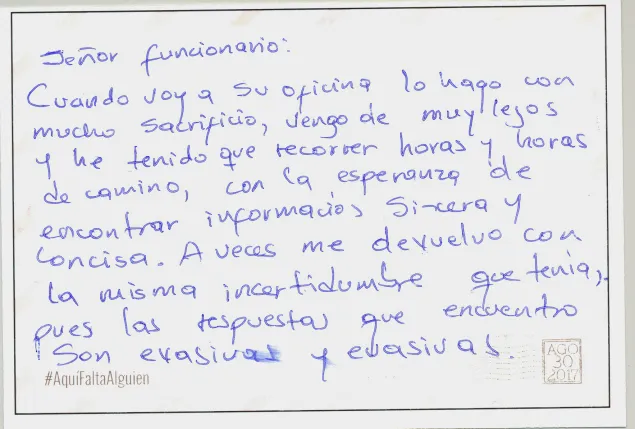 Señor funcionario:
Cuando voy a su oficina lo hago con
mucho sacrificio, vengo de muy lejos
y he tenido que recorrer horas y horas
de camino, con la esperanza de
encontrar información sincera y
concisa. A veces me devuelvo con
la misma incertidumbre que tenia,
pues las respuestas que encuentro
son evasivas y evasivas.
#AquíFaltaAlguien
AGO
30
2017